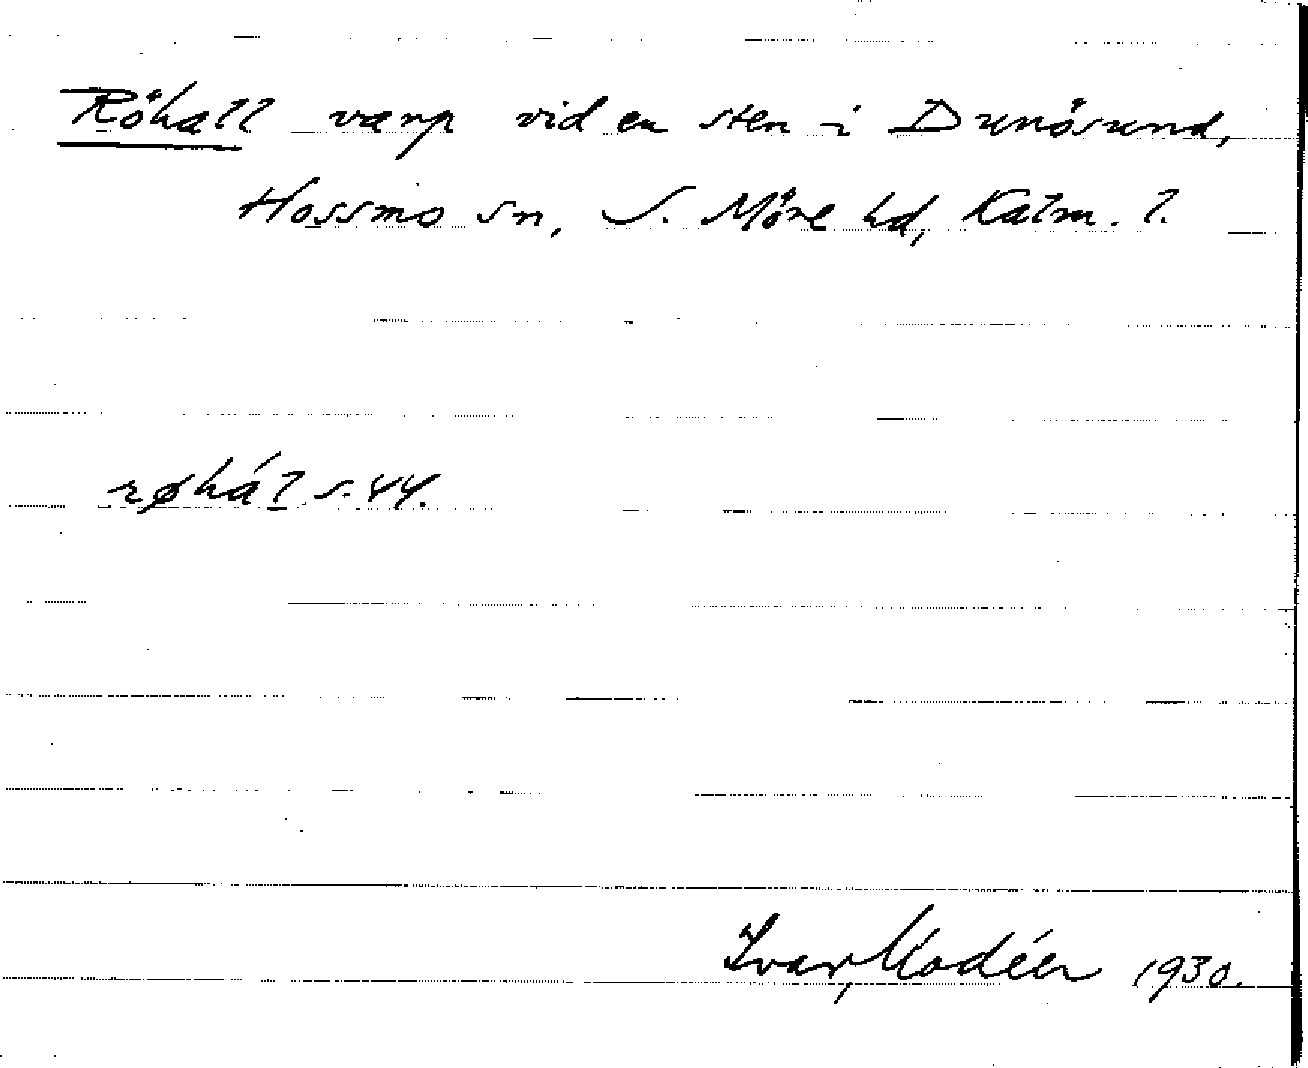 Röhall varp vid en sten i Dunösund,
Hossmo sn, S. Möre hd, Kalm. l.
røhál s. 44.
Ivar Modéer 1930.